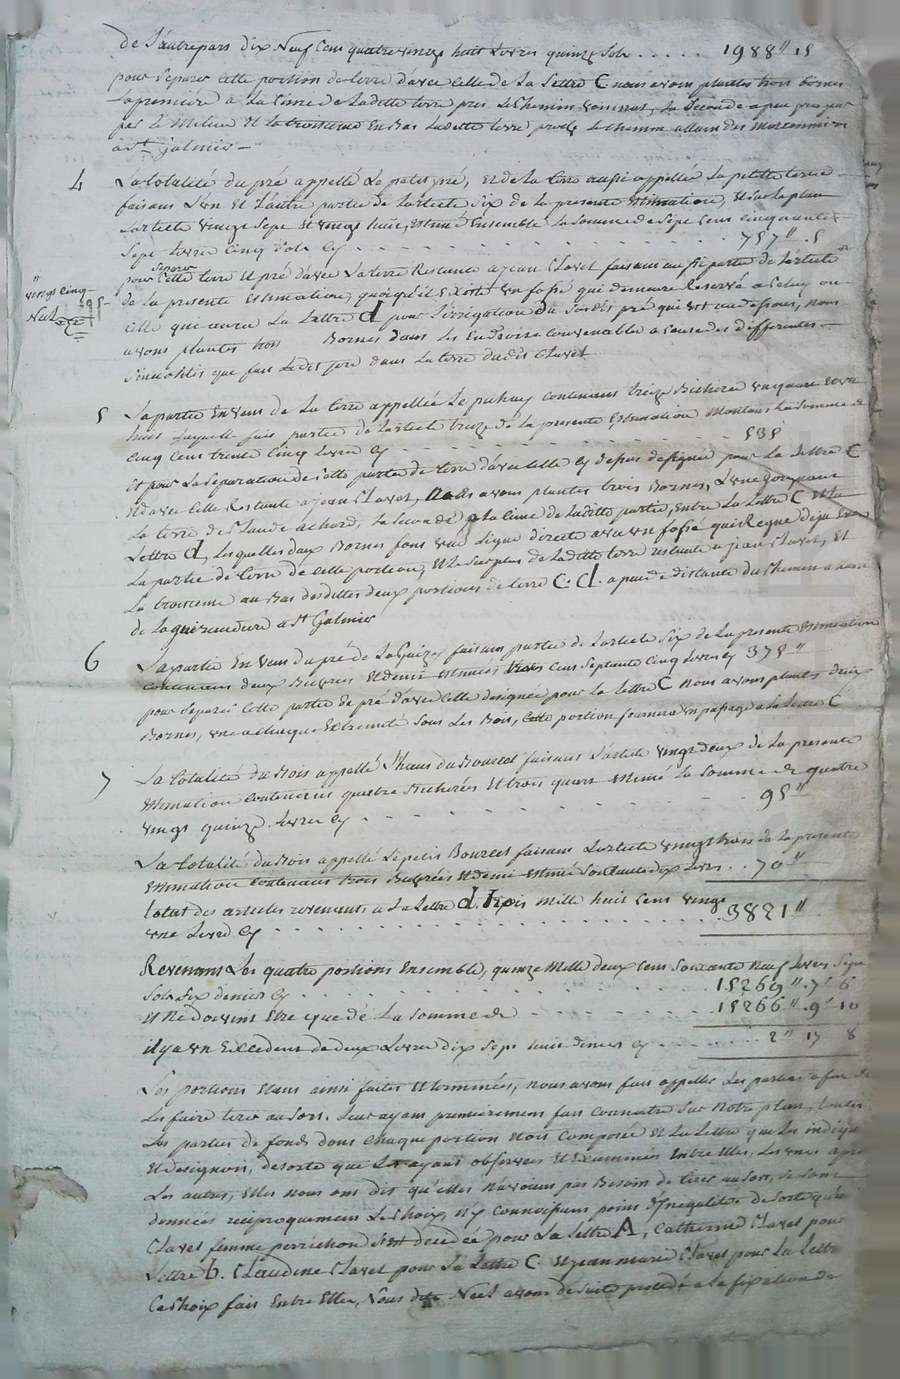 de L'autrepart dix Neuf Cent quatre vingt huit Livres quinze Sols ..... 1988" 15
pour Séparer Cette portion de terre d'avec Celle de La Lettre C nous avons plantés trois bornes
La premiere à La Cime de Laditte terre pres Le Chemin, La Seconde a peu pres par
par le Milieu Et La troisieme En Bas Laditte terre proche Le Chemin allant des
a St Galmier
4 La totalité du pré appellé Le petit pré, Et de La terre aussi appellée La petite terre
faisant L'un Et L'autre partie de L'article Six de La presente Estimation, Et Sur Le plan
L'article vingt Sept Et vingt huit, Estimé Ensemble La Somme de Sept Cent Cinquante
Sept Livres Cinq Sols Cy ..... 757" .5
pour Séparer Cette terre Et pré d'avec La terre Restante a jean Clavet faisant aussi partie de L'article
vingt Cinq
de La presente Estimation, quoiqu'il Existe un fossé qui demeure Reservé a Celuy ou
Celle qui aura La Lettre d pour L'irrigation du Susdit pré qui Est au dessous, nous
avons plantés trois Bornes dans Les Endroits Convenable a Cause des differentes
Sinuosités que fait Ledit pré dans La terre dudit Clavet
5 La partie En vent de La terre appellée Le puhuy Contenant treize Bicherée
huit Laquelle fait partie de L'article treize de La presente Estimation Montant La Somme de
Cinq Cent trente Cinq Livres Cy ..... 535
Et pour La Séparation de Cette partie de terre d'avec Celle Cy dessus designée pour La Lettre C
Et d'avec Celle Restante a jean Clavet, Nous avons plantés trois Bornes, L'une
La terre de Claude achard, La Seconde a La Cime de Laditte partie, Entre La Lettre C Et La
Lettre d, Lesquelles deux Bornes font une Ligne directe avec un fossé qui Regne deja Entre
La partie de terre de Cette portion, Et Le Surplus de Laditte terre restante a jean Clavet, Et
La troisieme au Bas desdittes deux portions de terre C. d. a peu de distance du Chemin
de a St Galmier
6 La partie En vent du pré de faisant partie de L'article Six de La presente Estimation
Contenant deux Et demie Estimées trois Cent Septante Cinq Livres Cy 375"
pour Séparer Cette partie de pré d'avec Celle designée pour La Lettre C Nous avons plantés deux
Bornes, une a Chaque Extremité Sous Les Bois, Cette portion fournira un passage a La Lettre C
7 La totalité du Bois appellé faisant L'article vingt deux de La presente
Estimation Contenant quatre Bicherées Et trois quarts Estimé La Somme de quatre
vingt quinze Livres Cy ..... 95"
La totalité du Bois appellé Le petit Bourcet faisant L'article vingt trois de La presente
Estimation Contenant trois Bicherées Et demie Estimé Soixante dix Livres .. 70"
total des articles revenants a La Lettre d. trois Mille huit Cent vingt
une Livre Cy ..... 3821"
Revenant Les quatre portions Ensemble, quinze Mille deux Cent Soixante Neuf Livres Sept
Sols Six deniers Cy ..... 15269" .7s 6
Et Ne doivent Etre que de La Somme de ..... 15266" .9s 10
il y a un Excedent de deux Livres dix Sept huit deniers Cy ..... 2" 17 8
Les portions Etant ainsi faites Et terminées, nous avons fait appeller Les parties afin de
Les faire tirer au Sort. Leur ayant premierement fait Connoitre Sur Notre plan, toutes
Les parties de fonds dont Chaque portion Etoit Composée Et La Lettre qui Les indique
Et designoit, desorte que Les ayant observées Et Examinées Entre Elles, Les unes après
Les autres, Elles nous ont dit qu'elles N'avoient pas Besoin de tirer au Sort, Se Sont
données reciproquement Le Choix, N'y Connoissant point d'Inegalités desorte que
Clavet femme perrichon S'est decidée pour La Lettre A, Catherine Clavet pour
Lettre b. Claudine Clavet pour La Lettre C. Et jean marie Clavet pour La Lettre
Ce Choix fait Entre Elles, Nous dit Neel avons de Suite procedé a La fixation de